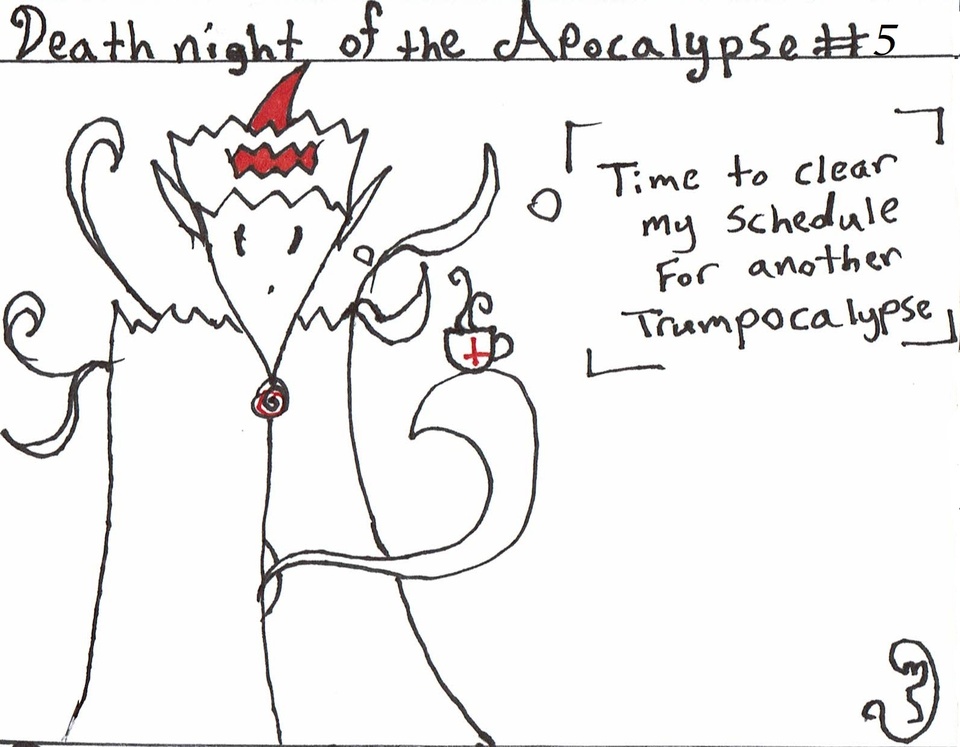 Death night of the Apocalypse #5
Time to clear
my schedule
For another
Trumpocalypse